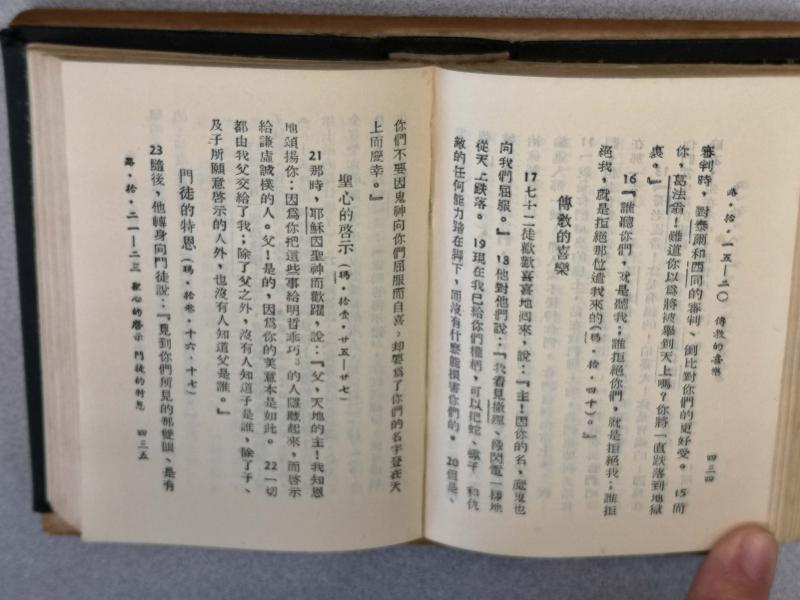 路·拾·一五—二〇 傳教的喜樂 四三四
審判時，對泰爾和西同的審判、倒比對你們的更好受。 15 而
你，葛法翁！難道你以爲將被舉到天上嗎？你將一直跌落到地獄
裏。』
16『誰聽你們，就是聽我；誰拒絕你們，就是拒絕我；誰拒
絕我，就是拒絕那位遣我來的（瑪·拾·四十）。』
傳教的喜樂
17七十二徒歡歡喜喜地回來，說：『主！因你的名，魔鬼也
向我們屈服。』 18他對他們說：『我看見撒殫、像閃電一樣地
從天上跌落。 19現在我已給你們權柄，可以把蛇、蠍子、和仇
敵的任何能力踏在脚下，而沒有什麽能損害你們的。 20但是、
你們不要因鬼神向你們屈服而自喜，却要爲了你們的名字登在天
上而慶幸。』
聖心的啓示（瑪·拾壹·廿五—廿七）
21那時，耶穌因聖神而歡躍，說：『父，天地的主！我知恩
地頌揚你：因爲你把這些事給明哲乖巧的人隱瞞起來，而啓示
給謙虛誠樸的人。父！是的，因爲你的美意本是如此。 22一切
都由我父交給了我；除了父之外，沒有人知道子是誰，除了子、
及子所願意啓示的人外，也沒有人知道父是誰。』
門徒的特恩（瑪·拾叁·十六·十七）
23隨後，他轉身向門徒說：『見到你們所見的那雙眼、是有
路·拾·二一—二三 聖心的啓示 門徒的特恩 四三五